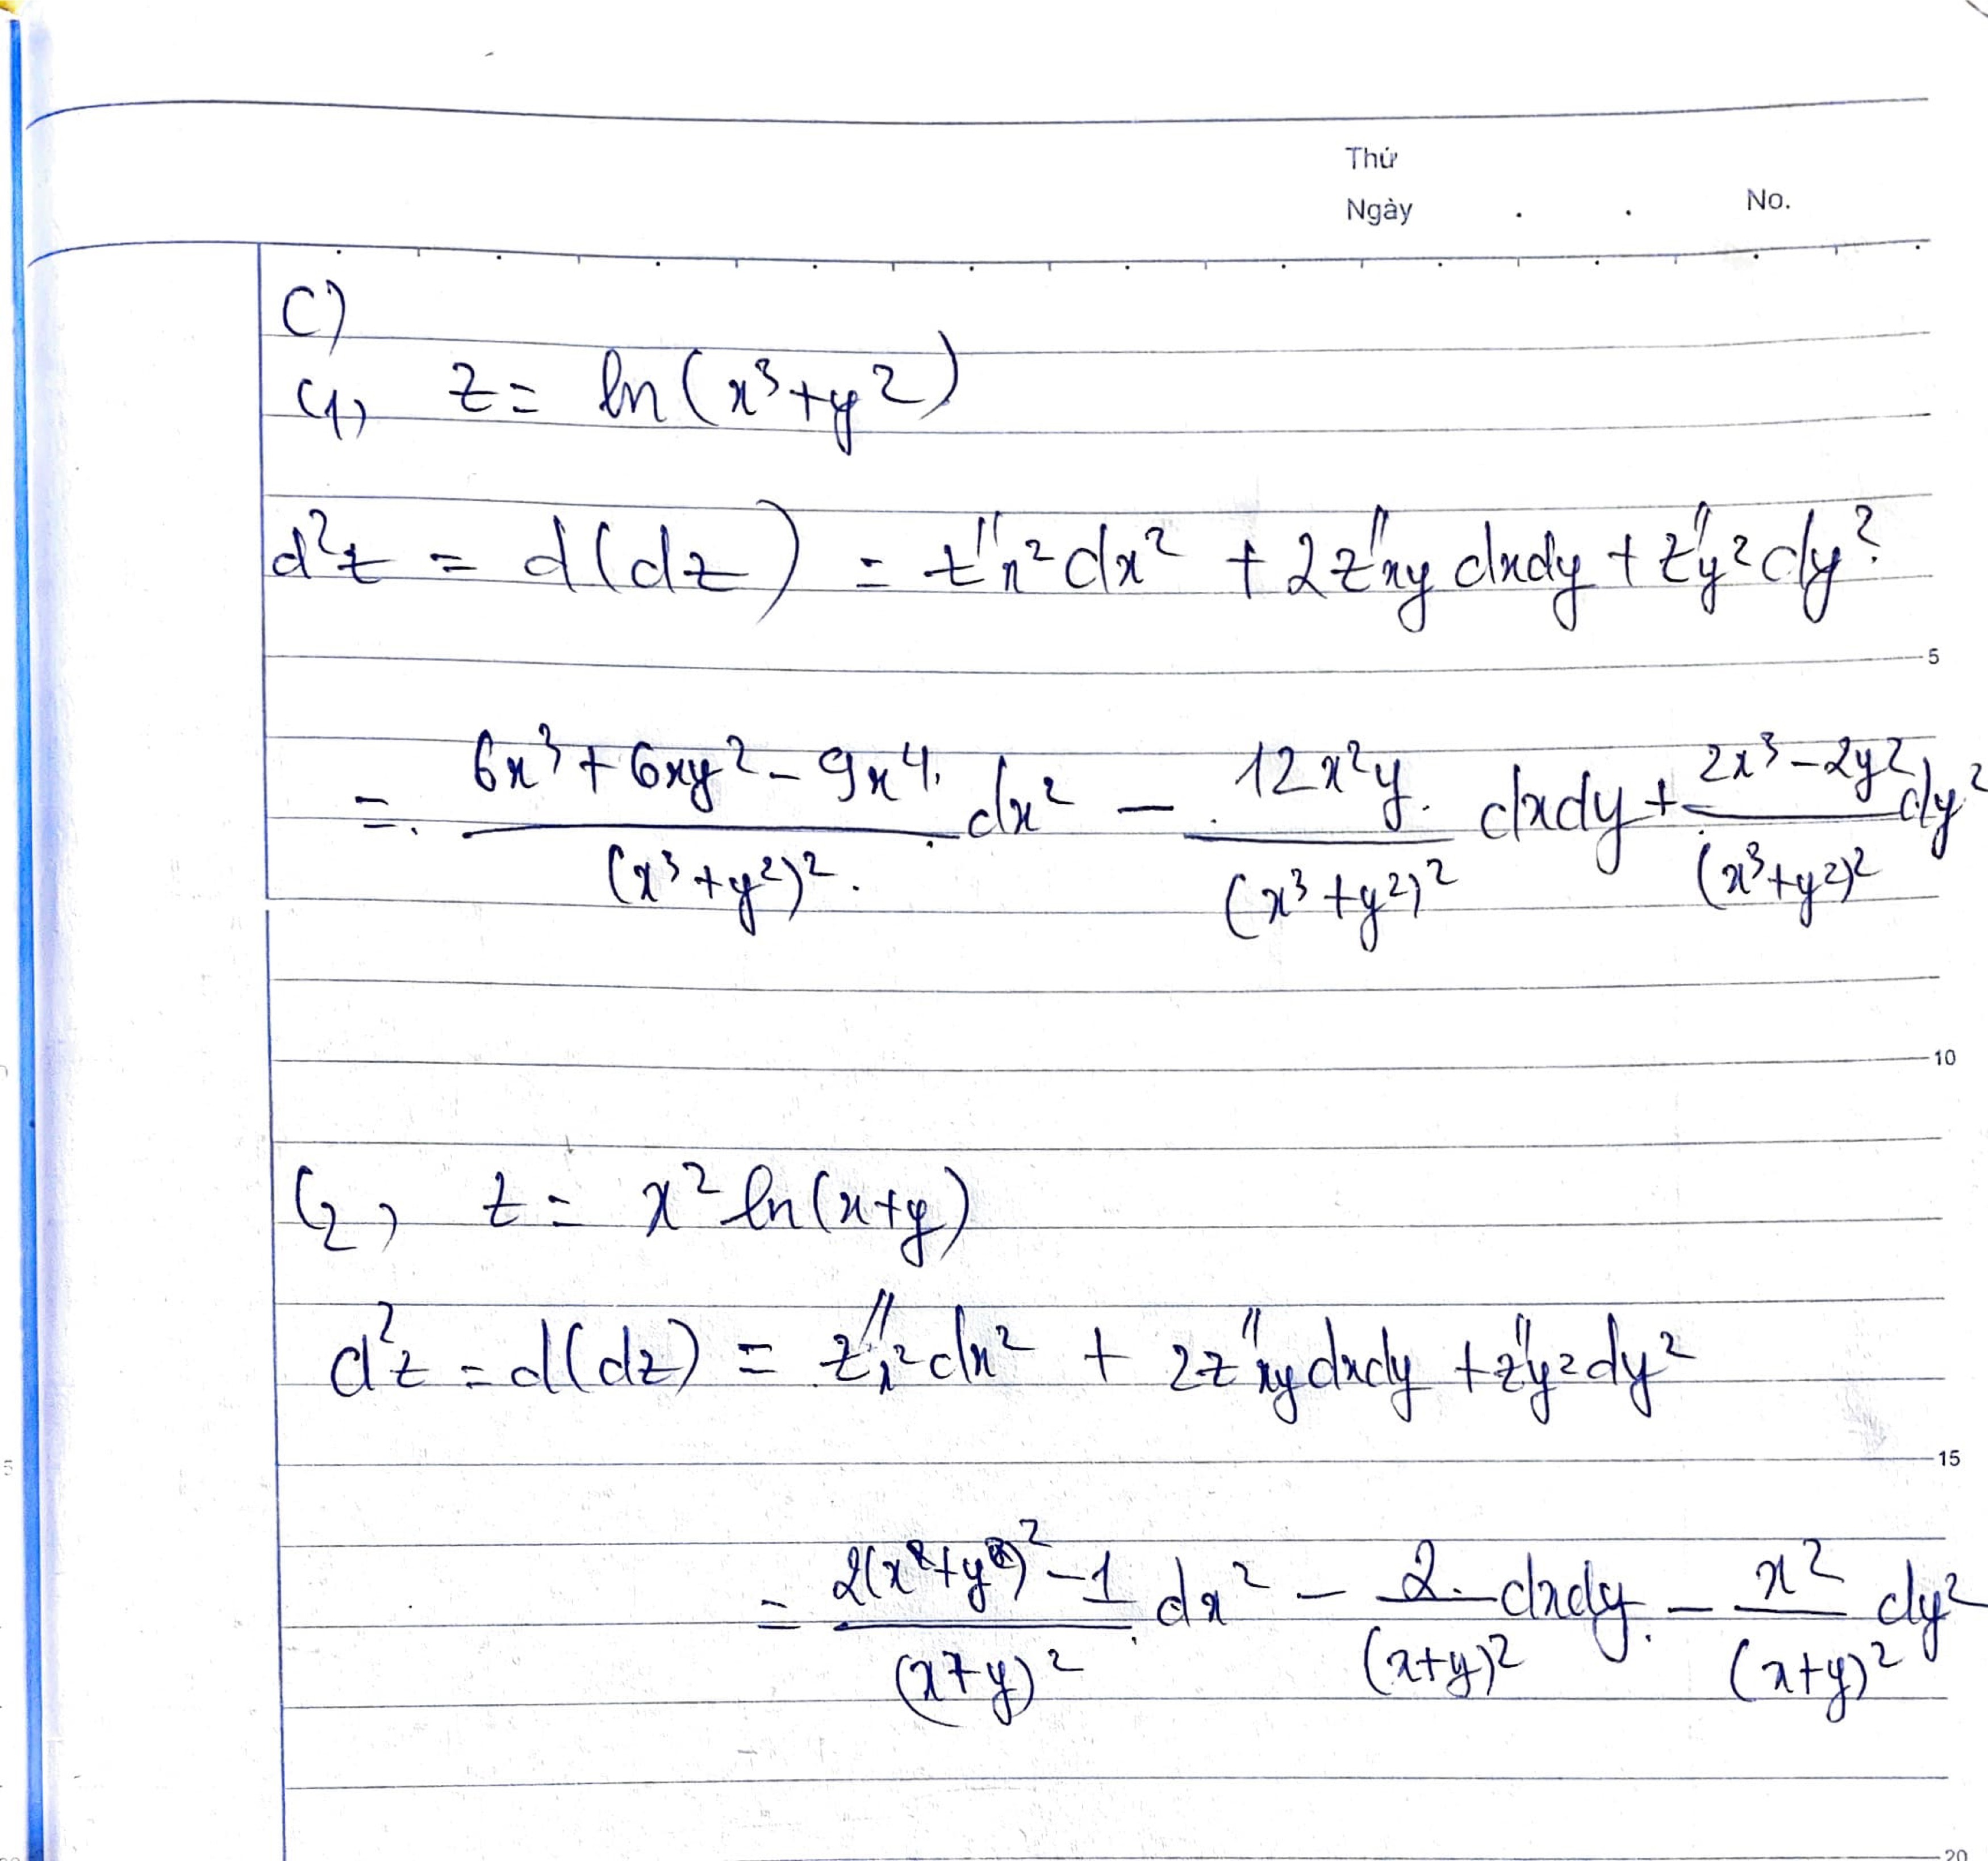 Thứ
Ngày . . No.
C)
C1, z = ln(x³+y²)
d²z = d(dz) = z''x² dx² + 2z''xy dxdy + z''y² dy²
5
= (6x³+6xy²-9x⁴)/(x³+y²)² dx² - (12x²y)/(x³+y²)² dxdy + (2x³-2y²)/(x³+y²)² dy²
10
C2, z = x² ln(x+y)
d²z = d(dz) = z''x² dx² + 2z''xy dxdy + z''y² dy²
15
= (2(x²+y²)²-1)/(x+y)² dx² - 2/(x+y)² dxdy - x²/(x+y)² dy²
20